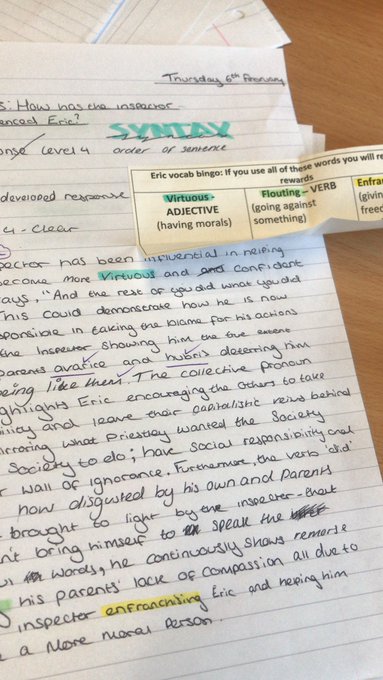 Thursday 6th February
s: How has the inspector
enced Eric?
SYNTAX
order of sentence
onse Level 4
Eric vocab bingo: If you use all of these words you will re
rewards
Virtuous -
ADJECTIVE
(having morals)
Flouting – VERB
(going against
something)
Enfran
(givin
freed
developed response
4 - Clear
spector has been influential in helping
become more virtuous and confident
says, "And the rest of you did what you did
This could demonstrate how he is now
sponsible in taking the blame for his actions
the Inspector showing him the true extent
parents avarice and hubris deterring him
being like them. The collective pronoun
ghlights Eric encouraging the others to take
ility and leave their capitalistic behind
irroring what Priestley wanted the Society
Society to do; have social responsibility and
r wall of ignorance. Furthermore, the verb 'did'
now disgusted by his own and Parents
brought to light by the inspector - that
n't bring himself to speak the
words, he continuously shows remorse
his parents' lack of compassion all due to
inspector enfranchising Eric and helping him
a more moral person.